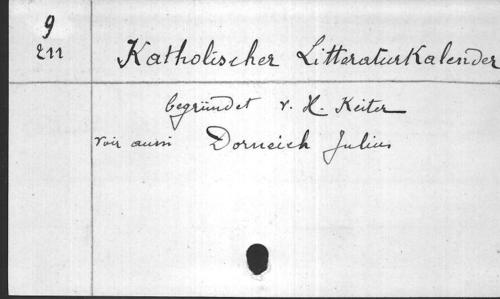 9
Z11
Katholischer Litteraturkalender
begründet v. H. Keiter
voir aussi Dorneich Julius